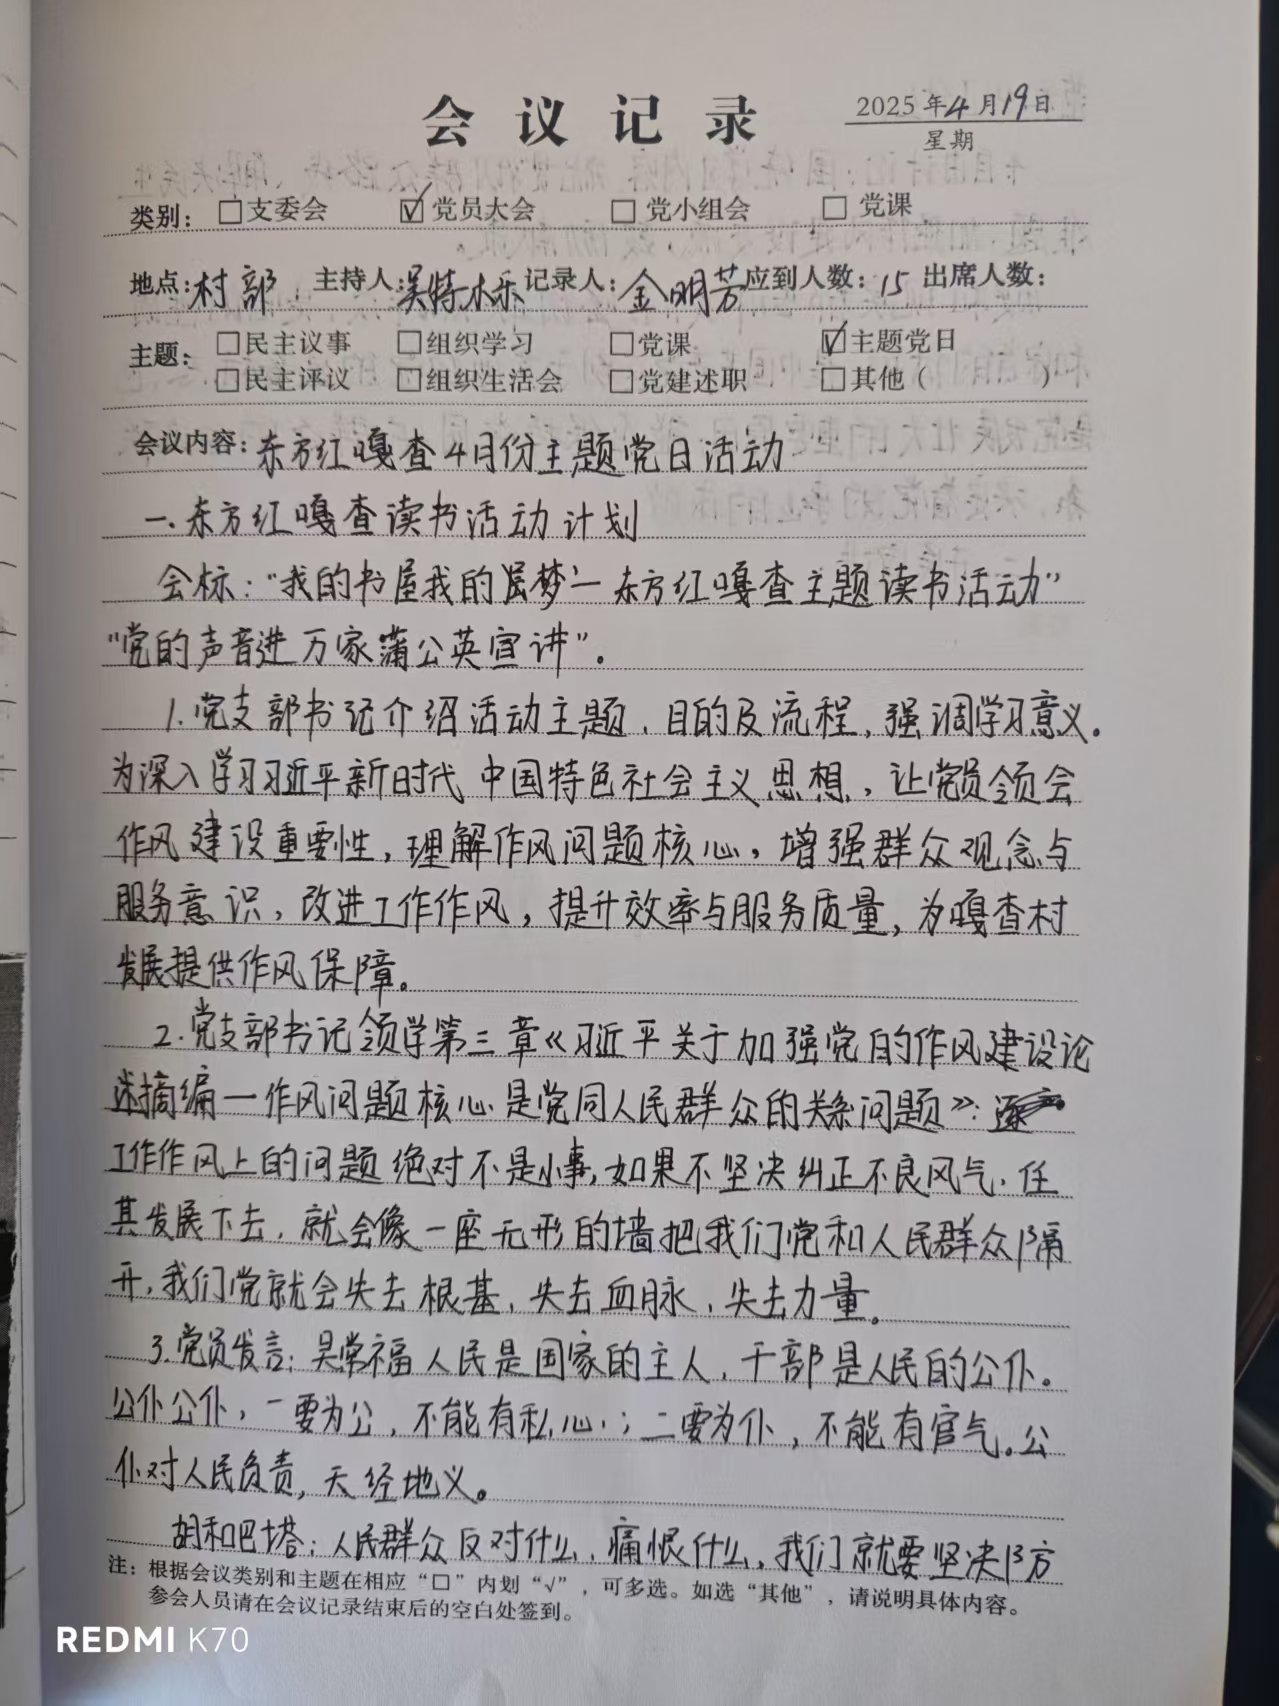 会议记录
2025年4月19日
星期
类别：□支委会 ☑党员大会 □党小组会 □党课
地点：村部 主持人：吴特木乐 记录人：金明芳 应到人数：15 出席人数：
主题：□民主议事 □组织学习 □党课 ☑主题党日
□民主评议 □组织生活会 □党建述职 □其他（ ）
会议内容：东方红嘎查4月份主题党日活动
一、东方红嘎查读书活动计划
会标："我的书屋我的梦—东方红嘎查主题读书活动"
"党的声音进万家蒲公英宣讲"。
1.党支部书记介绍活动主题、目的及流程，强调学习意义。
为深入学习习近平新时代中国特色社会主义思想，让党员领会
作风建设重要性，理解作风问题核心，增强群众观念与
服务意识，改进工作作风，提升效率与服务质量，为嘎查村
发展提供作风保障。
2.党支部书记领学第三章《习近平关于加强党的作风建设论
述摘编一作风问题核心是党同人民群众的关系问题》：
工作作风上的问题绝对不是小事，如果不坚决纠正不良风气，任
其发展下去，就会像一座无形的墙把我们党和人民群众隔
开，我们党就会失去根基、失去血脉、失去力量。
3.党员发言：吴常福人民是国家的主人，干部是人民的公仆。
公仆公仆，一要为公，不能有私心；二要为仆，不能有官气。公
仆对人民负责，天经地义。
胡和巴塔：人民群众反对什么、痛恨什么，我们就要坚决防方
注：根据会议类别和主题在相应"□"内划"√"，可多选。如选"其他"，请说明具体内容。
参会人员请在会议记录结束后的空白处签到。
REDMI K70